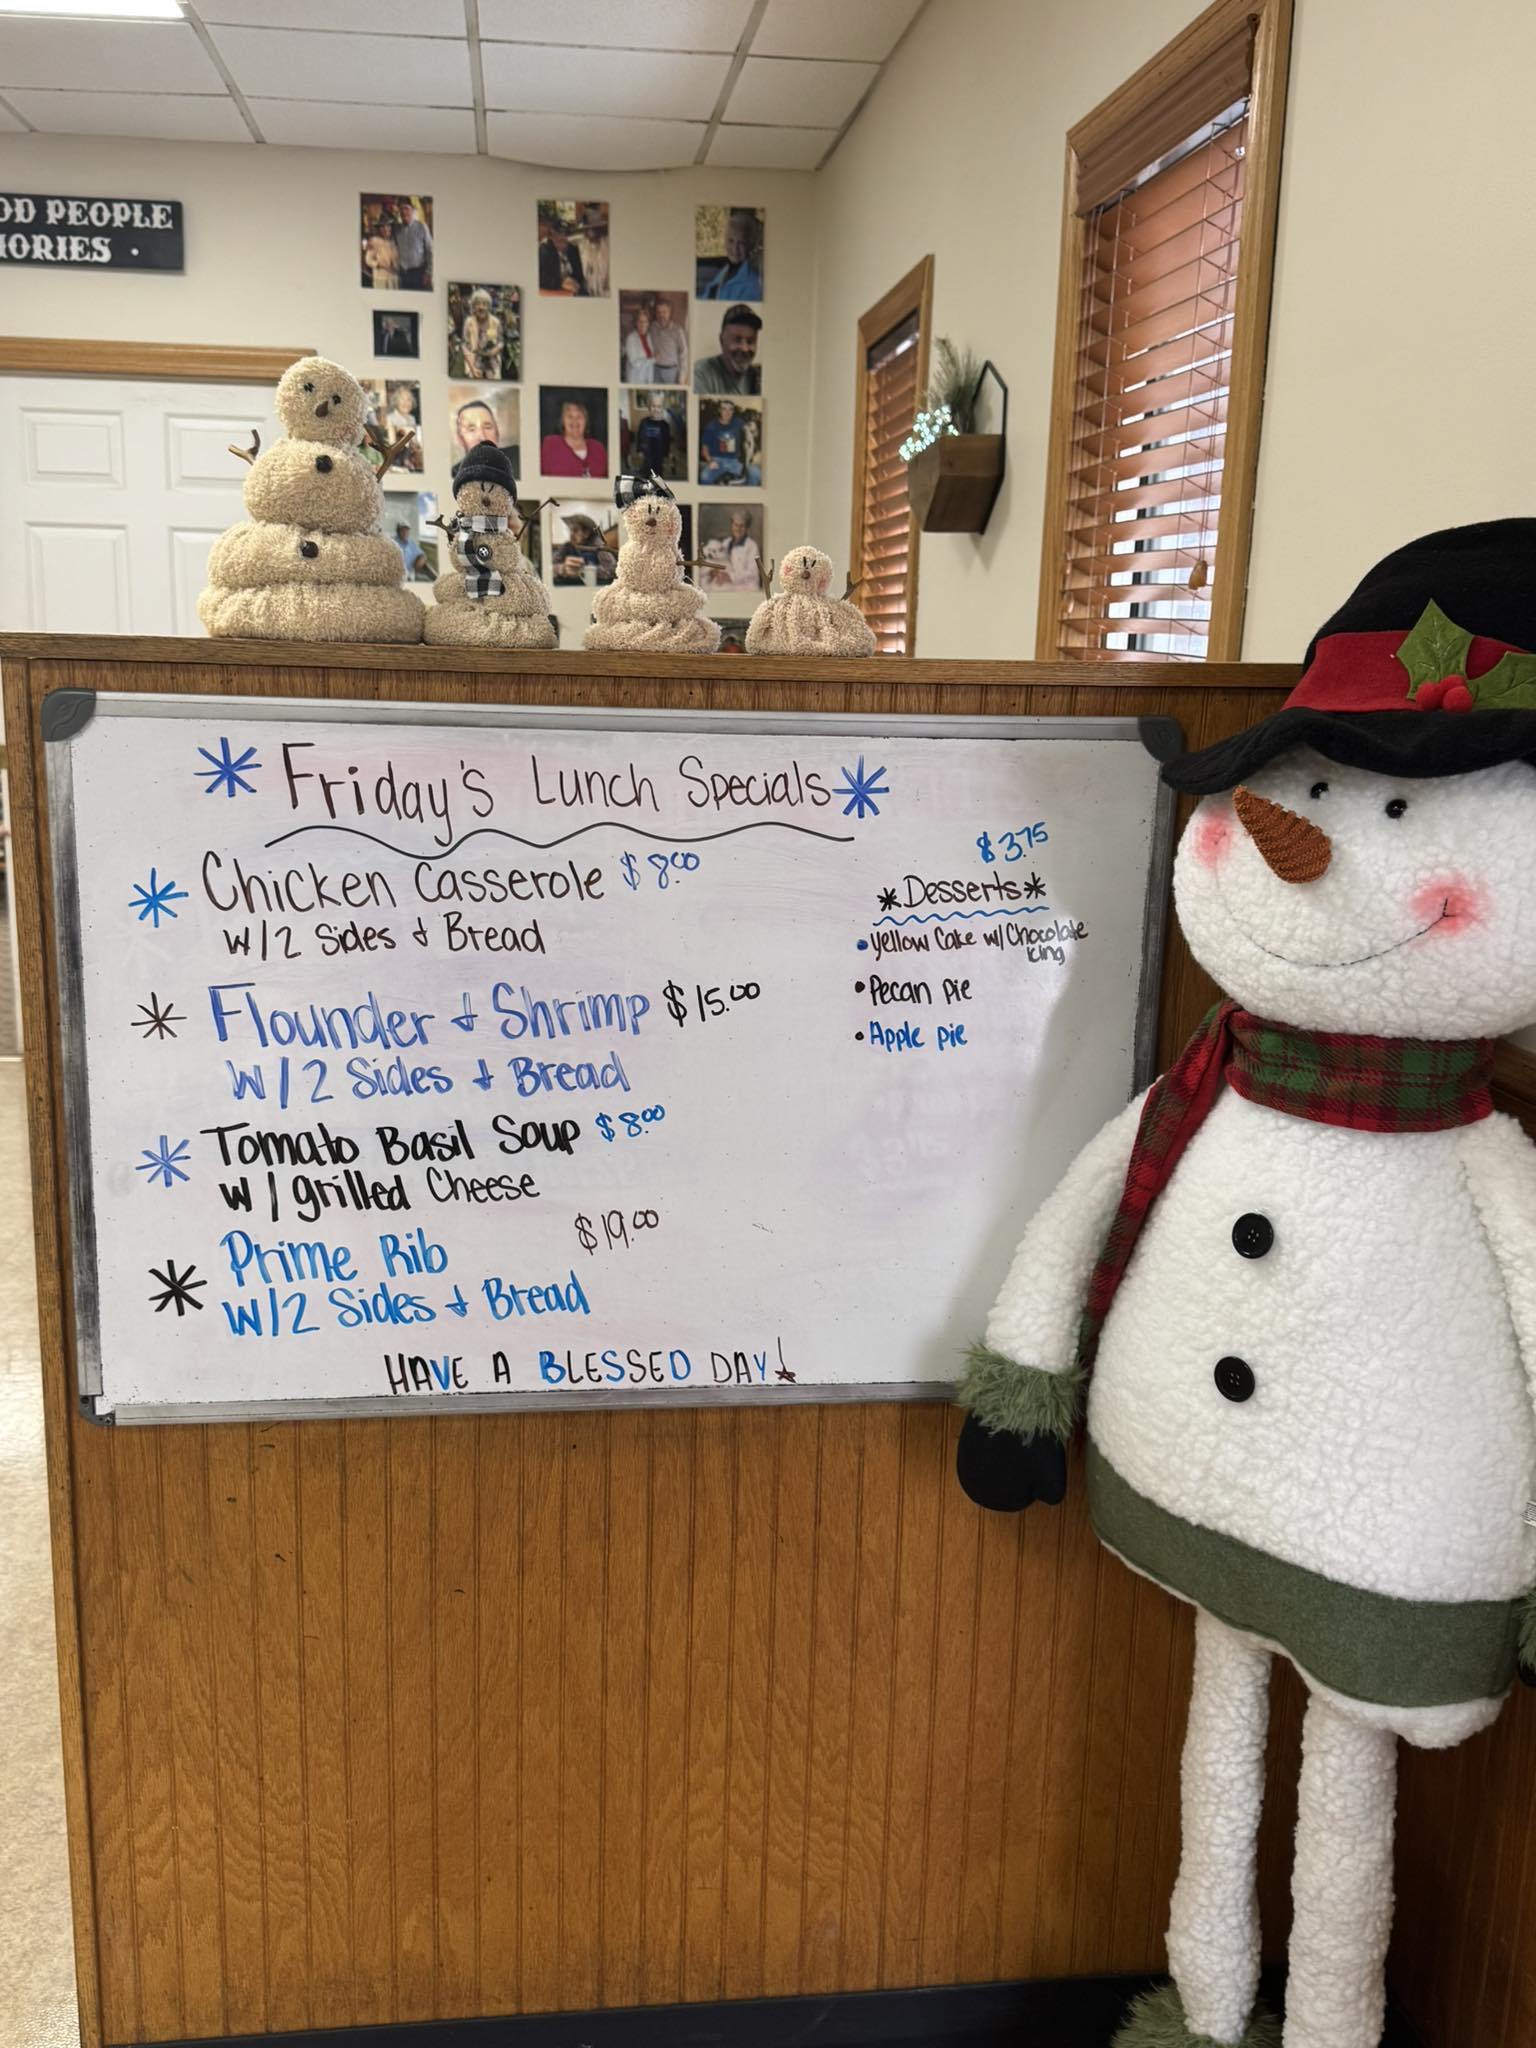 OD PEOPLE
ORIES ·
Friday's Lunch Specials
Chicken Casserole $8.00
w/2 Sides & Bread
Flounder & Shrimp $15.00
w/2 Sides & Bread
Tomato Basil Soup $8.00
w/grilled Cheese
Prime Rib $19.00
w/2 Sides & Bread
HAVE A BLESSED DAY!
$3.75
*Desserts*
• Yellow Cake w/Chocolate
Icing
• Pecan pie
• Apple pie